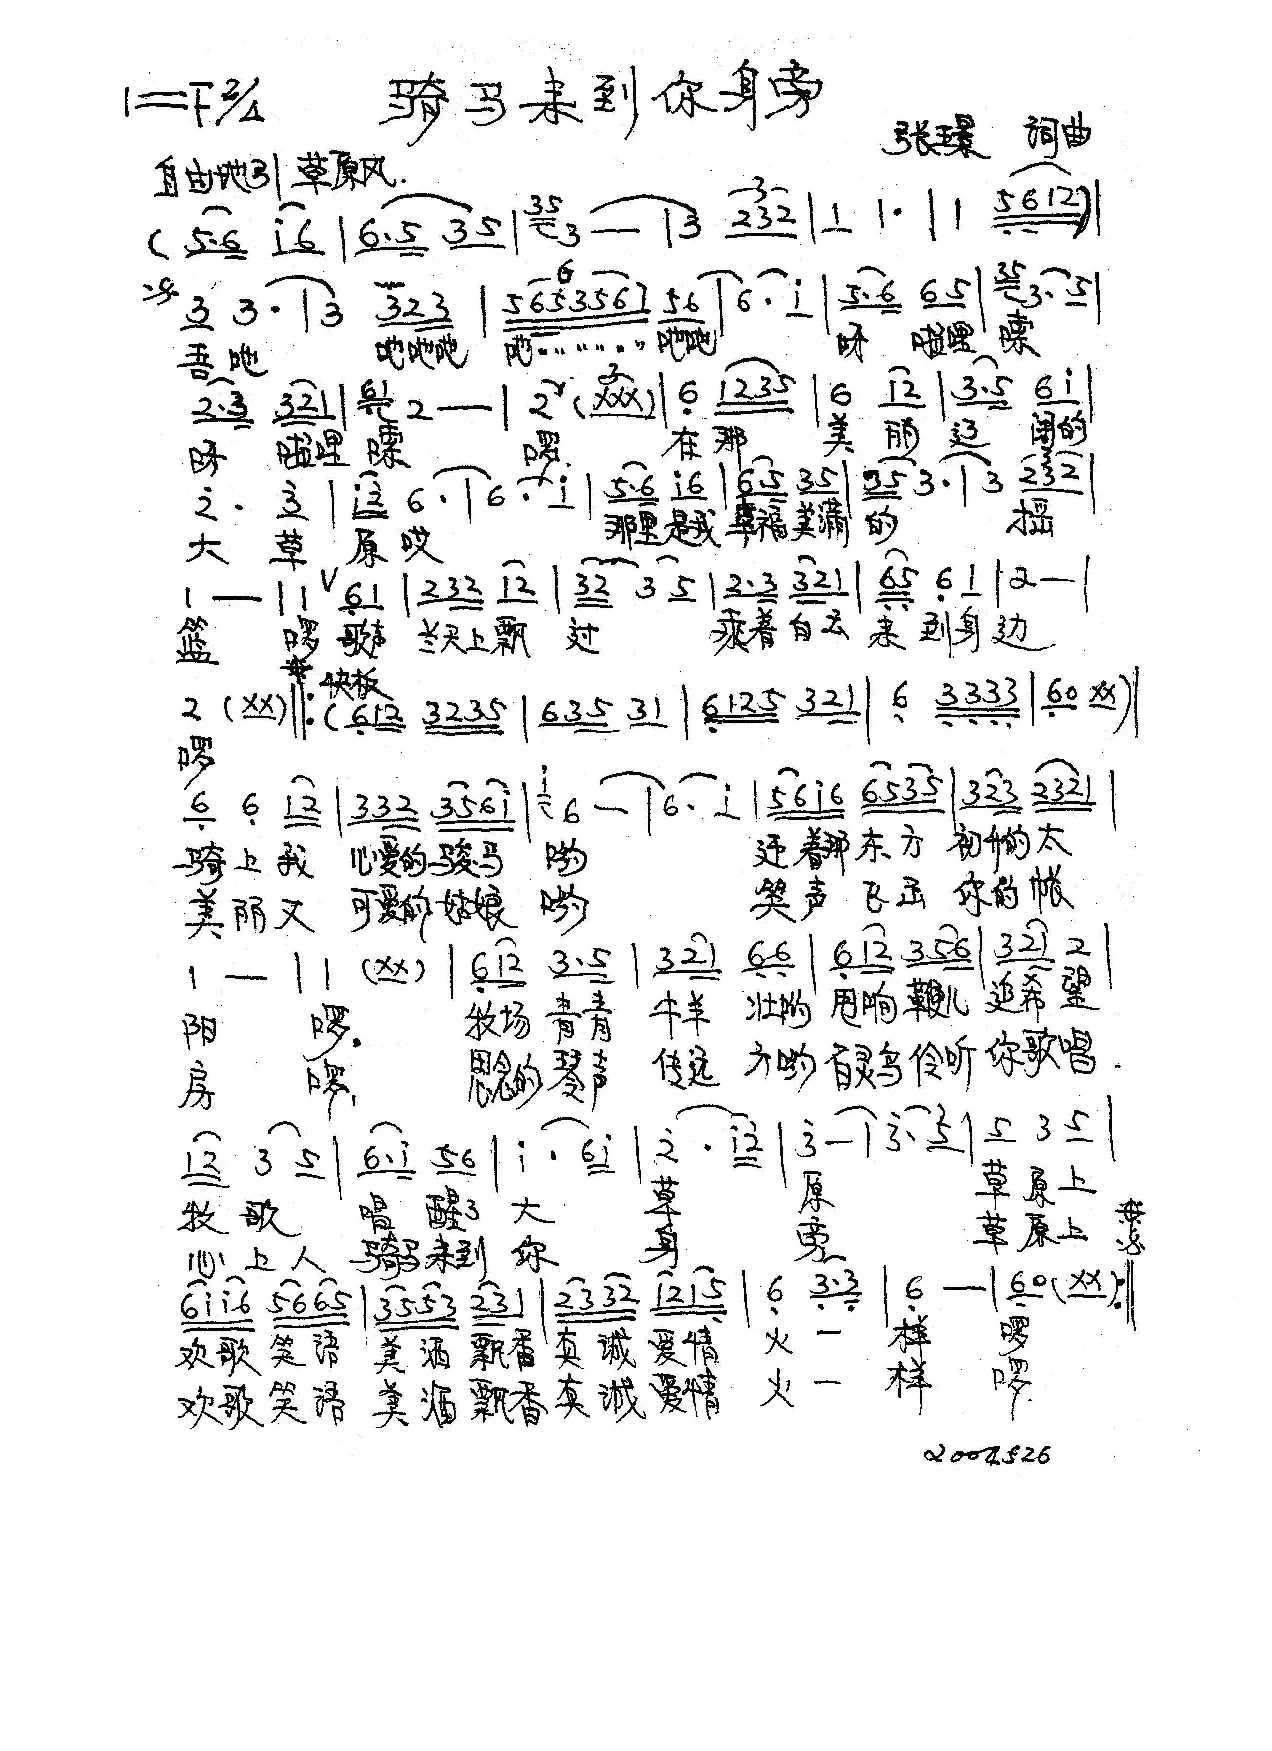 1=F 2/4 骑马来到你身旁
张璟 词曲
自由地 草原风.
(5·6 i6 | 6·5 35 | 35 3 — | 3 232 | 1 1· | 1 5612) |
3 3· | 3 323 | 5653561 56 | 6· i | 5·6 65 | 35 3·5 |
吾吔 吔吔吔 吔 吔吔 呀 嘥哩 嗦
2·3 321 | 61 2 — | 2 (xxx) | 6 1235 | 6 12 | 3·5 6i |
呀 嘥哩 嗦 啰. 在那 美丽 辽阔的
2· 3 | i2 6· | 6· i | 5·6 i6 | 6·5 35 | 35 3· | 3 232 |
大草原哎 那里是我 幸福美满 的 摇
1 — | 1 61 | 232 12 | 32 3 5 | 2·3 321 | 65 6 1 | 2 — |
篮 啰 歌声 兰天上飘 过 乘着白云 来到身边.
2 (xx) ‖: 快板 (612 3235 | 635 31 | 6125 321 | 6 3333 | 60 xx) |
啰
6 6 12 | 332 356i | i 6 — | 6· i | 56i6 6535 | 323 2321 |
骑上我 心爱的骏马 哟 迎着那东方 初升的太
美丽又 可爱的姑娘 哟 笑声飞出 你的帐
1 — | 1 (xx) | 612 3·5 | 321 66 | 612 356 | 32i 2 |
阳 啰. 牧场青青 牛羊 壮哟 甩响鞭儿 追希望
房 啰, 思念的琴声 传远 方哟 百灵鸟伶听 你歌唱.
12 3 5 | 6·i 56 | i· 6i | 2· i2 | 3 — | 3·5 | 5 3 5 |
牧歌 唱醒了 大 草 原 草原上
心上人 骑马来到 你 身 旁 草原上
6ii6 5665 | 3553 231 | 2332 1215 | 6 3·3 | 6 — | 60 (xx) :‖
欢歌笑语 美酒飘香 真诚爱情 火一样 啰
欢歌笑语 美酒飘香 真诚爱情 火一样 啰.